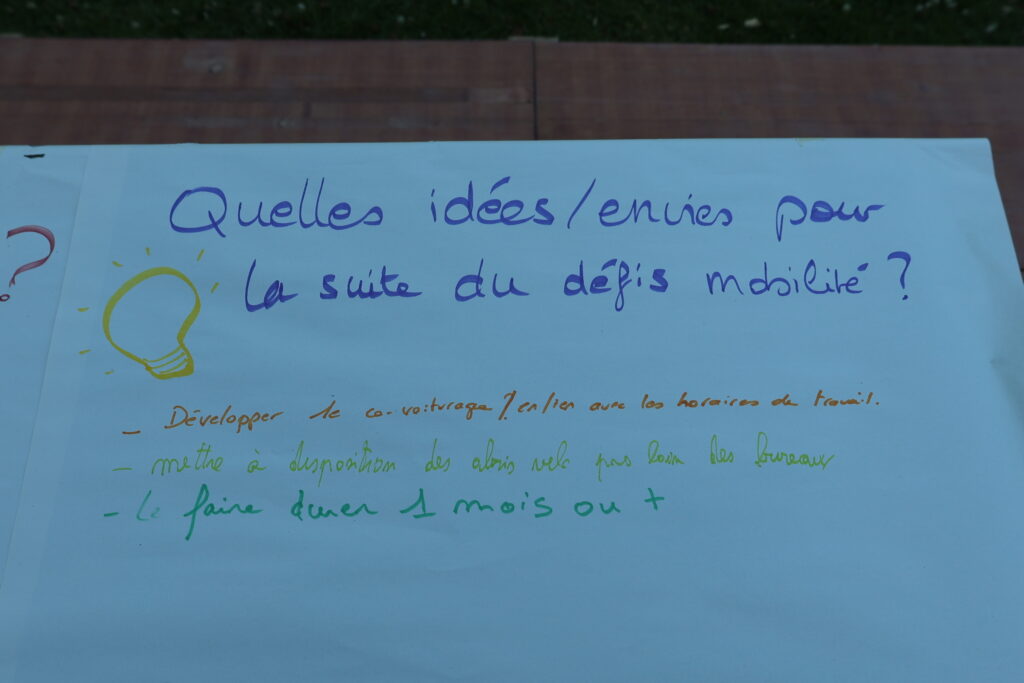 ?
Quelles idées/envies pour
la suite du défis mobilité ?
- Développer le co-voiturage ? en lien avec les horaires de travail.
- mettre à disposition des abris vélo pas loin des bureaux
- Le faire durer 1 mois ou +